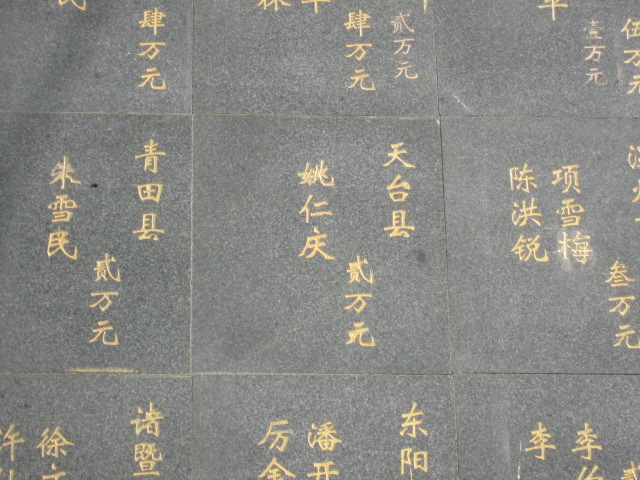 肆万元
肆万元
贰万元
伍万元
壹万元
青田县
朱雪民
贰万元
天台县
姚仁庆
贰万元
项雪梅
陈洪锐
叁万元
诸暨
徐
东阳
潘开
厉金
李
李